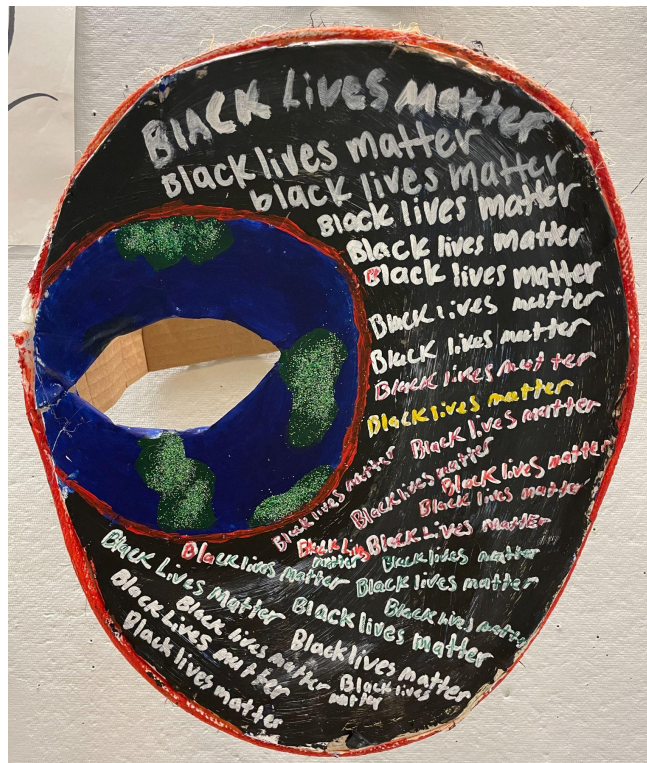 BlACK Lives Matter
Black lives matter
black lives matter
Black lives matter
Black lives matter
Black lives matter
Black lives matter
Black lives matter
Black lives mat ter
Black lives matter
Black lives matter
Black lives matter
Black lives matter
Black lives matter
Black lives matter
Black lives
matter
Black Lives Matter
Black lives matter
Black lives matter
Black lives matter
Black lives matter
Black Lives Matter
Black lives matter
Black Lives matter
Black lives matter
Black lives matter
Black lives
matter
Black lives matter